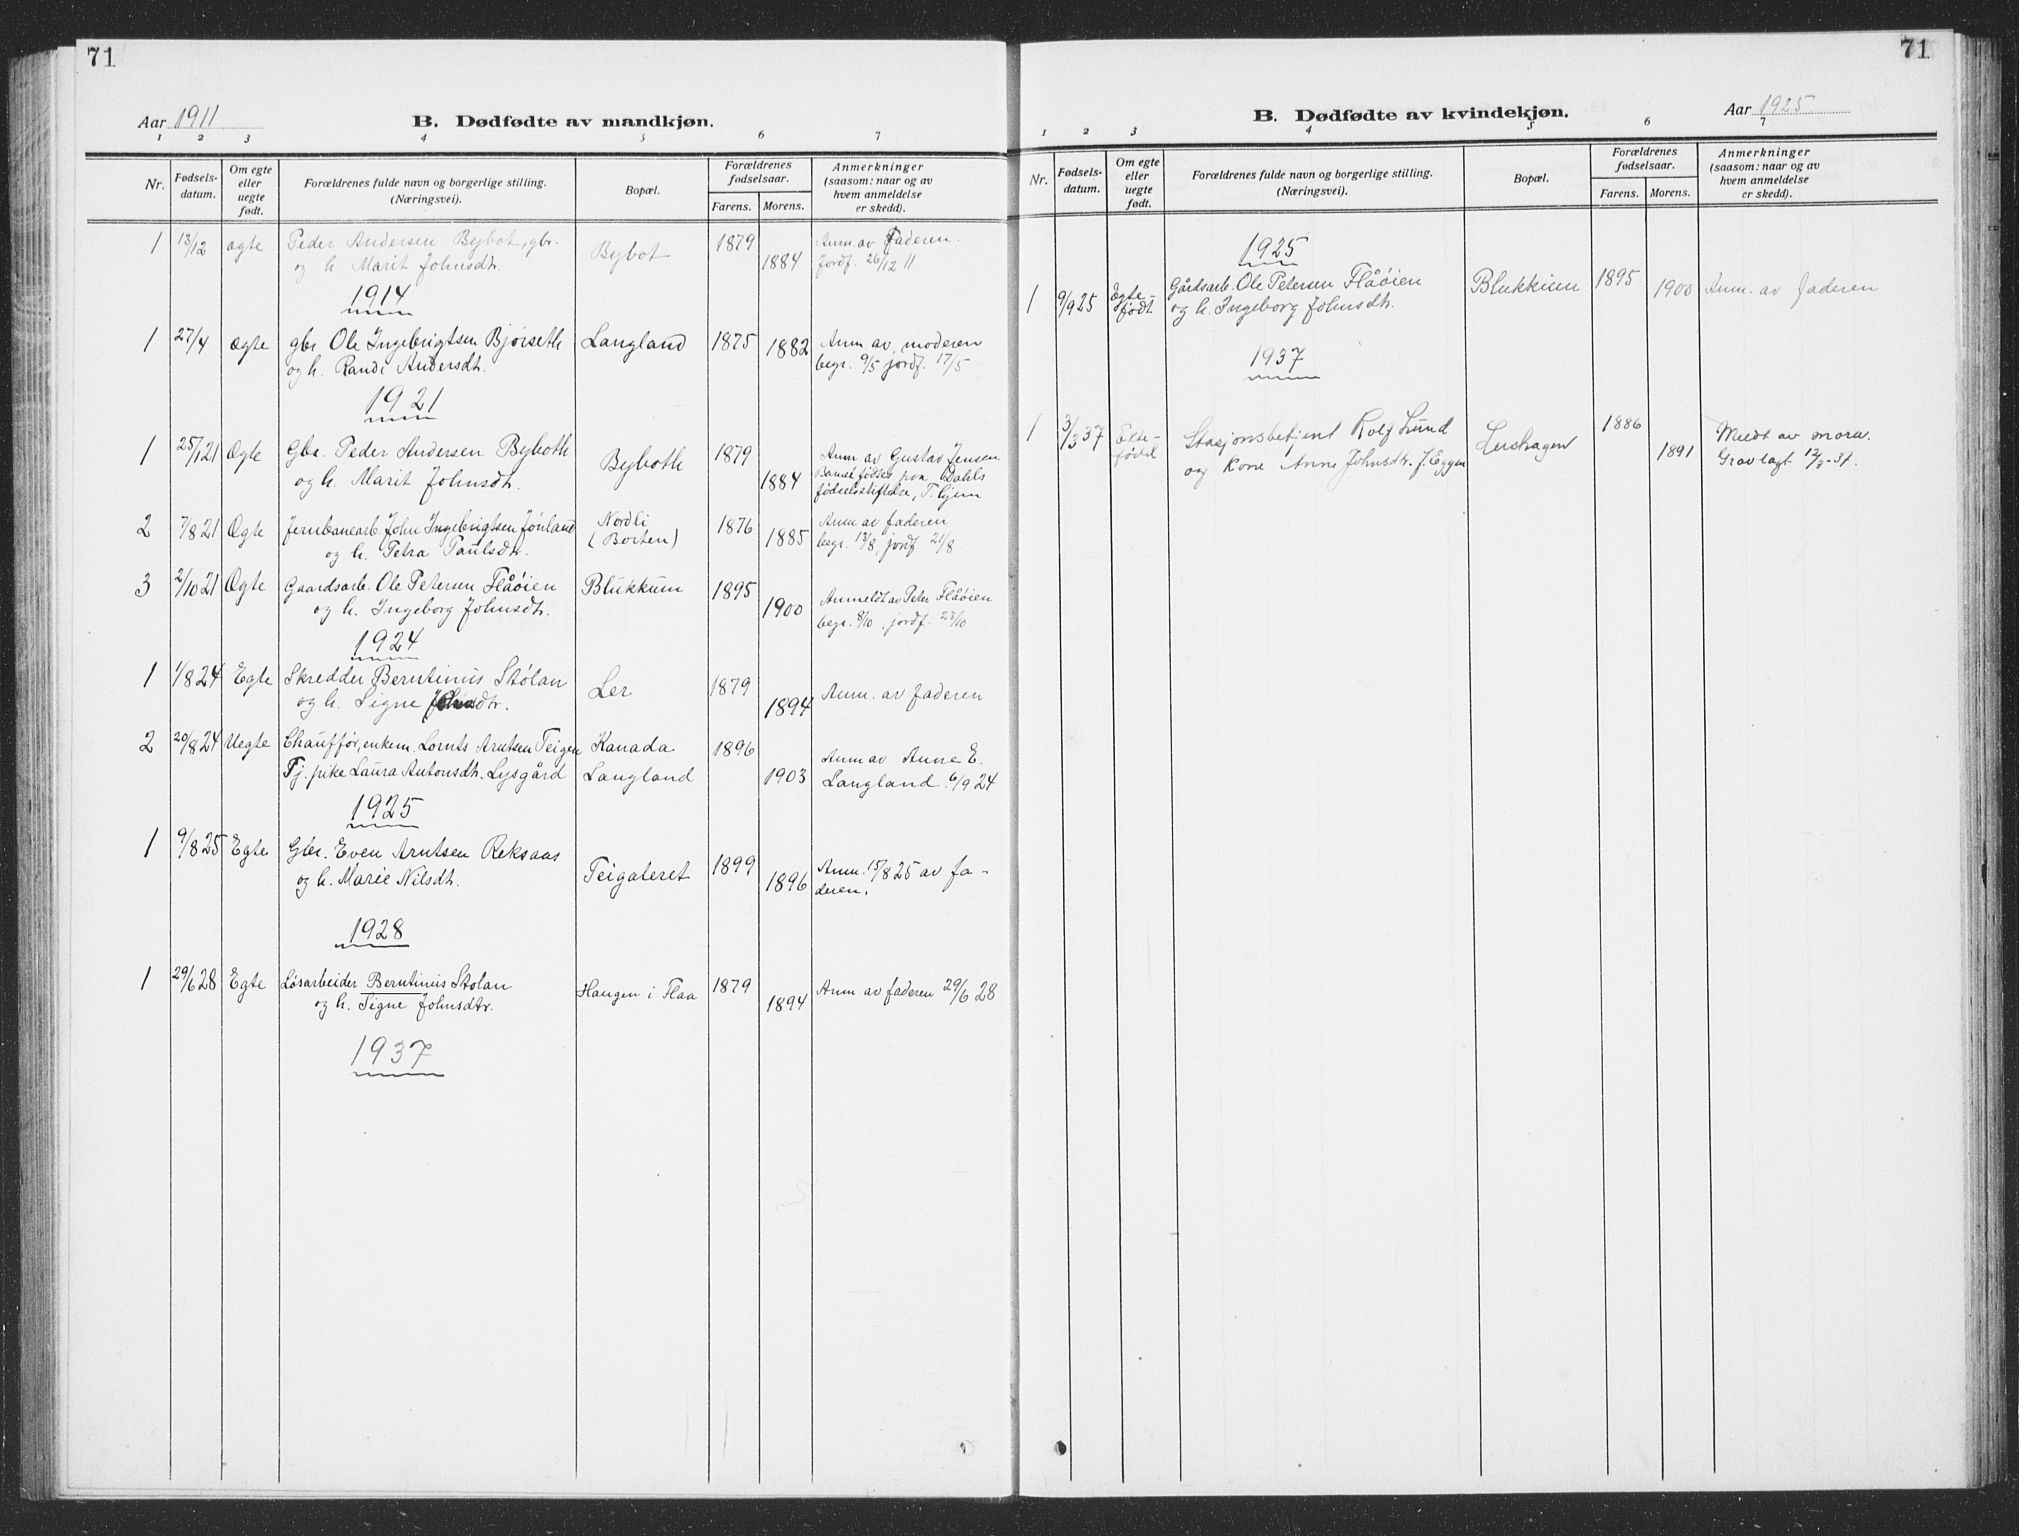 71
Aar 1911
B. Dødfødte av mandkjøn.
1 2 3 4 5 6 7
Nr. Fødsels-datum. Om egte eller uegte født. Forældrenes fulde navn og borgerlige stilling. (Næringsvei). Bopæl. Forældrenes fødselsaar. Farens. Morens. Anmerkninger (saasom: naar og av hvem anmeldelse er skedd).
1 13/12 ægte Peder Andersen Bybot, gbr. Bybot 1879 Anm. av Faderen.
og h. Marit Johnsdtr. 1884 Jordf. 26/12 11
1914
1 27/4 ægte gbr Ole Ingebrigtsen Bjørseth Langland 1875 1882 Anm. av moderen
og h. Randi Andersdtr. begr. 9/5 jordf. 17/5
1921
1 25/1 21 Ægte Gbr. Peder Andersen Byboth Byboth 1879 Anm av Gustav Jensen
og h. Marit Johnsdtr. 1884 Barnet fødtes paa E Dahls
fødselsstiftelse, T.hjem
2 7/8 21 Ægte Jernbanearb. John Ingebrigtsen Jønland Nordli 1876 Anm av faderen
og h. Petra Paulsdtr. (Borten) 1885 begr. 13/8, jordf 21/8
3 2/10 21 Ægte Gaardsarb. Ole Petersen Flåøien Blukkum 1895 Anmeldt av Peter Flåøien
og h. Ingeborg Johnsdtr. 1900 begr. 8/10, jordf. 23/10
1924
1 1/8 24 Egte Skredder Berntinius Stølan Ler 1879 Anm. av faderen
og h. Signe Johnsdtr. 1894
2 20/8 24 Uegte Chauffør, enkem. Lornts Arntsen Teigen Kanada 1896 Anm av Anne E.
Tj. pike Laura Antonsdtr. Lysgård Langland 1903 Langland 6/9 24
1925
1 9/8 25 Egte Gbr. Even Arntsen Reksaas Teigateret 1899 Anm. 15/8 25 av fa-
og h. Marie Nilsdtr. 1896 deren.
1928
1 29/6 28 Egte Løsarbeider Berntinius Stølan Haugen i Flaa 1879 Anm av faderen 29/6 28
og h. Signe Johnsdtr. 1894
1937
71
Aar 1925
B. Dødfødte av kvindekjøn.
1 2 3 4 5 6 7
Nr. Fødsels-datum. Om egte eller uegte født. Forældrenes fulde navn og borgerlige stilling. (Næringsvei). Bopæl. Forældrenes fødselsaar. Farens. Morens. Anmerkninger (saasom: naar og av hvem anmeldelse er skedd).
1925
1 9/9 25 Ægte- Gårdsarb. Ole Petersen Flåøien Blukkum 1895 1900 Anm. av faderen
født og h. Ingeborg Johnsdtr.
1937
1 3/3 37 Ekte- Stasjonsbetjent Rolf Lund Lershagen 1886 Meldt av mora.
fødd og Kone Anne Johnsdtr. f. Eggen 1891 Gravlagt 12/3-37.